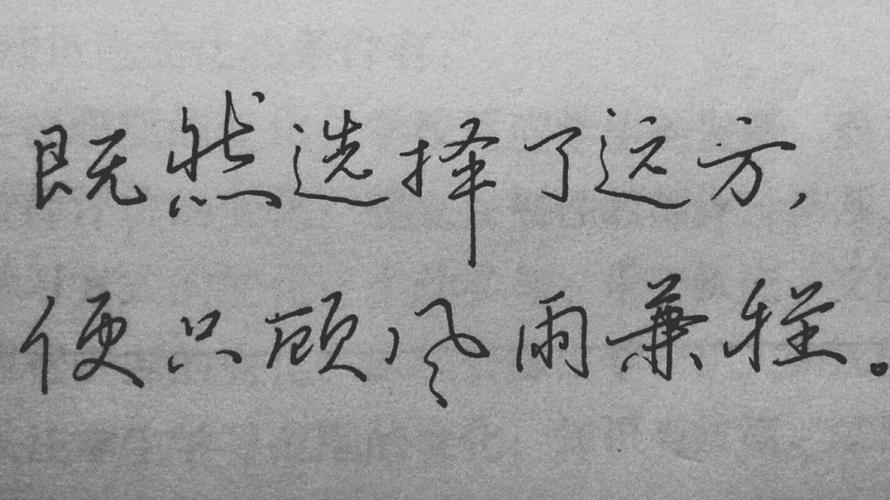 既然选择了远方，
便只顾风雨兼程。